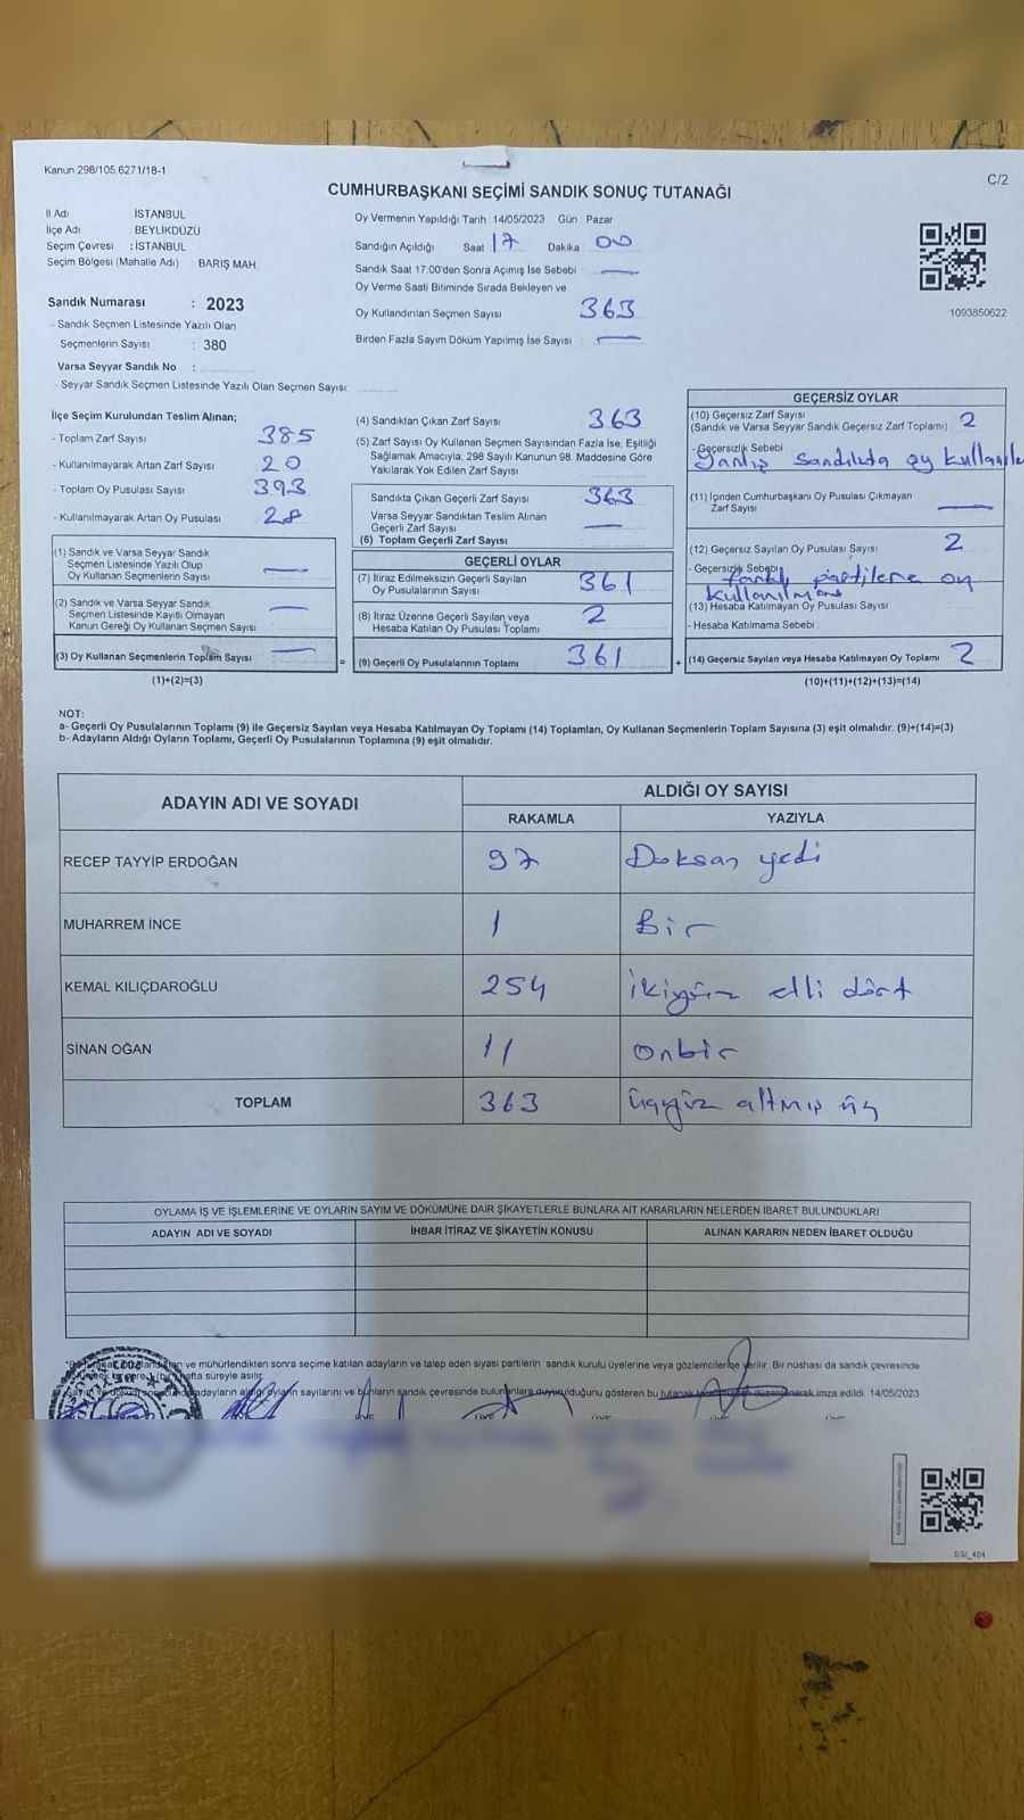 Kanun 298/105.6271/18-1
C/2
CUMHURBAŞKANI SEÇİMİ SANDIK SONUÇ TUTANAĞI
İl Adı İSTANBUL
İlçe Adı BEYLİKDÜZÜ
Seçim Çevresi : İSTANBUL
Seçim Bölgesi (Mahalle Adı) BARIŞ MAH.
Sandık Numarası : 2023
- Sandık Seçmen Listesinde Yazılı Olan
Seçmenlerin Sayısı : 380
Varsa Seyyar Sandık No :
- Seyyar Sandık Seçmen Listesinde Yazılı Olan Seçmen Sayısı:
Oy Vermenin Yapıldığı Tarih :14/05/2023 Gün : Pazar
Sandığın Açıldığı Saat 17 Dakika 00
Sandık Saat 17.00'den Sonra Açımış İse Sebebi —
Oy Verme Saati Bitiminde Sırada Bekleyen ve
Oy Kullandırılan Seçmen Sayısı 363
Birden Fazla Sayım Döküm Yapılmış İse Sayısı —
1093850622
İlçe Seçim Kurulundan Teslim Alınan;
- Toplam Zarf Sayısı 385
- Kullanılmayarak Artan Zarf Sayısı 20
- Toplam Oy Pusulası Sayısı 393
- Kullanılmayarak Artan Oy Pusulası 28
(1) Sandık ve Varsa Seyyar Sandık
Seçmen Listesinde Yazılı Olup
Oy Kullanan Seçmenlerin Sayısı —
(2) Sandık ve Varsa Seyyar Sandık
Seçmen Listesinde Kayıtlı Olmayan
Kanun Gereği Oy Kullanan Seçmen Sayısı —
(3) Oy Kullanan Seçmenlerin Toplam Sayısı —
(1)+(2)=(3)
(4) Sandıktan Çıkan Zarf Sayısı 363
(5) Zarf Sayısı Oy Kullanan Seçmen Sayısından Fazla İse, Eşitliği
Sağlamak Amacıyla, 298 Sayılı Kanunun 98. Maddesine Göre
Yakılarak Yok Edilen Zarf Sayısı
Sandıkta Çıkan Geçerli Zarf Sayısı 363
Varsa Seyyar Sandıktan Teslim Alınan
Geçerli Zarf Sayısı —
(6) Toplam Geçerli Zarf Sayısı
GEÇERLİ OYLAR
(7) İtiraz Edilmeksizin Geçerli Sayılan
Oy Pusulalarının Sayısı 361
(8) İtiraz Üzerine Geçerli Sayılan veya
Hesaba Katılan Oy Pusulası Toplamı 2
= (9) Geçerli Oy Pusulalarının Toplamı 361 +
GEÇERSİZ OYLAR
(10) Geçersiz Zarf Sayısı 2
(Sandık ve Varsa Seyyar Sandık Geçersiz Zarf Toplamı)
- Geçersizlik Sebebi
Yanlış sandıkta oy
(11) İçinden Cumhurbaşkanı Oy Pusulası Çıkmayan
Zarf Sayısı —
(12) Geçersiz Sayılan Oy Pusulası Sayısı 2
- Geçersizlik Sebebi
farklı partilere oy
kullanılması
(13) Hesaba Katılmayan Oy Pusulası Sayısı
- Hesaba Katılmama Sebebi
(14) Geçersiz Sayılan veya Hesaba Katılmayan Oy Toplamı 2
(10)+(11)+(12)+(13)=(14)
NOT:
a- Geçerli Oy Pusulalarının Toplamı (9) ile Geçersiz Sayılan veya Hesaba Katılmayan Oy Toplamı (14) Toplamları, Oy Kullanan Seçmenlerin Toplam Sayısına (3) eşit olmalıdır. (9)+(14)=(3)
b- Adayların Aldığı Oyların Toplamı, Geçerli Oy Pusulalarının Toplamına (9) eşit olmalıdır.
ADAYIN ADI VE SOYADI ALDIĞI OY SAYISI
RAKAMLA YAZIYLA
RECEP TAYYİP ERDOĞAN 97 Doksan yedi
MUHARREM İNCE 1 Bir
KEMAL KILIÇDAROĞLU 254 ikiyüz elli dört
SİNAN OĞAN 11 onbir
TOPLAM 363 üçyüz altmış üç
OYLAMA İŞ VE İŞLEMLERİNE VE OYLARIN SAYIM VE DÖKÜMÜNE DAİR ŞİKAYETLERLE BUNLARA AİT KARARLARIN NELERDEN İBARET BULUNDUKLARI
ADAYIN ADI VE SOYADI İHBAR İTİRAZ VE ŞİKAYETİN KONUSU ALINAN KARARIN NEDEN İBARET OLDUĞU
ve mühürlendikten sonra seçime katılan adayların ve talep eden siyasi partilerin sandık kurulu üyelerine veya gözlemcilerine verilir. Bir nüshası da sandık çevresinde
süreyle asılır.
adayların aldığı oyların sayılarını ve bunların sandık çevresinde bulunanlara duyurulduğunu gösteren bu tutanak imza edildi. 14/05/2023